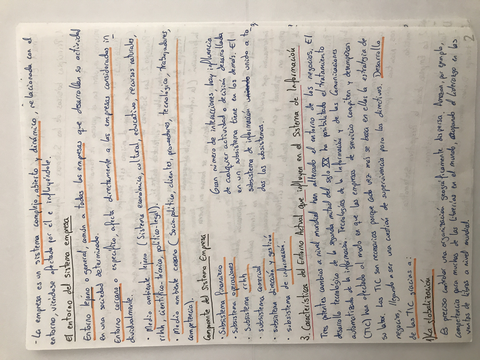 - La empresa es un sistema complejo, abierto y dinámico, relacionado con el
entorno, viéndose afectado por él e influyéndole.
El entorno del sistema empresa
Entorno lejano o general, común a todas las empresas que desarrollan su actividad
en una sociedad determinada.
Entorno cercano o específico, afecta directamente a las empresas consideradas
individualmente.
• Medio ambiente lejano (Sistema económico, cultural, educativo, recursos naturales,
rrhh, científico-técnico, político-legal).
• Medio ambiente cercano (Socio político, clientes, proveedores, tecnológico, trabajadores,
competencia).
Componente del Sistema Empresa
• Subsistema financiero
• Subsistema operaciones
• Subsistema rrhh
• subsistema comercial
• subsistema dirección y gestión
• subsistema de información.
Gran número de interacciones hay influencia
de cualquier actividad o decisión desarrollada
en un subsistema tiene en los demás. El
subsistema de información unido a to
dos los subsistemas.
3. Características del Entorno Actual que influyen en el Sistema de Información
Tres patentes cambios a nivel mundial han alterado el entorno de los negocios. El
desarrollo tecnológico de la segunda mitad del siglo XX ha posibilitado el tratamiento
automatizado de la información. Tecnologías de la Información y de las Comunicaciones
(TIC) han afectado al modo en que las empresas de servicio compiten y desempeñan
su labor. Las TIC son necesarias porque cada vez más se basa en ellas la estrategia de
negocios, llegando a ser una cuestión de supervivencia para los directivos. Desarrollo
de las TIC gracias a:
1/ La Globalización
Es preciso controlar una organización geográficamente dispersa. Amazon, por ejemplo,
competencia para muchas de las librerías en el mundo, adquiriendo el liderazgo en las
ventas de libros a nivel mundial.
2